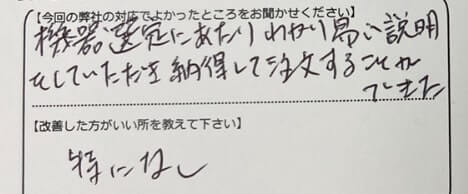 【今回の弊社の対応でよかったところをお聞かせください】
機器選定にあたりわかり易い説明
をしていただき納得して注文することが
できました
【改善した方がいい所を教えて下さい】
特になし